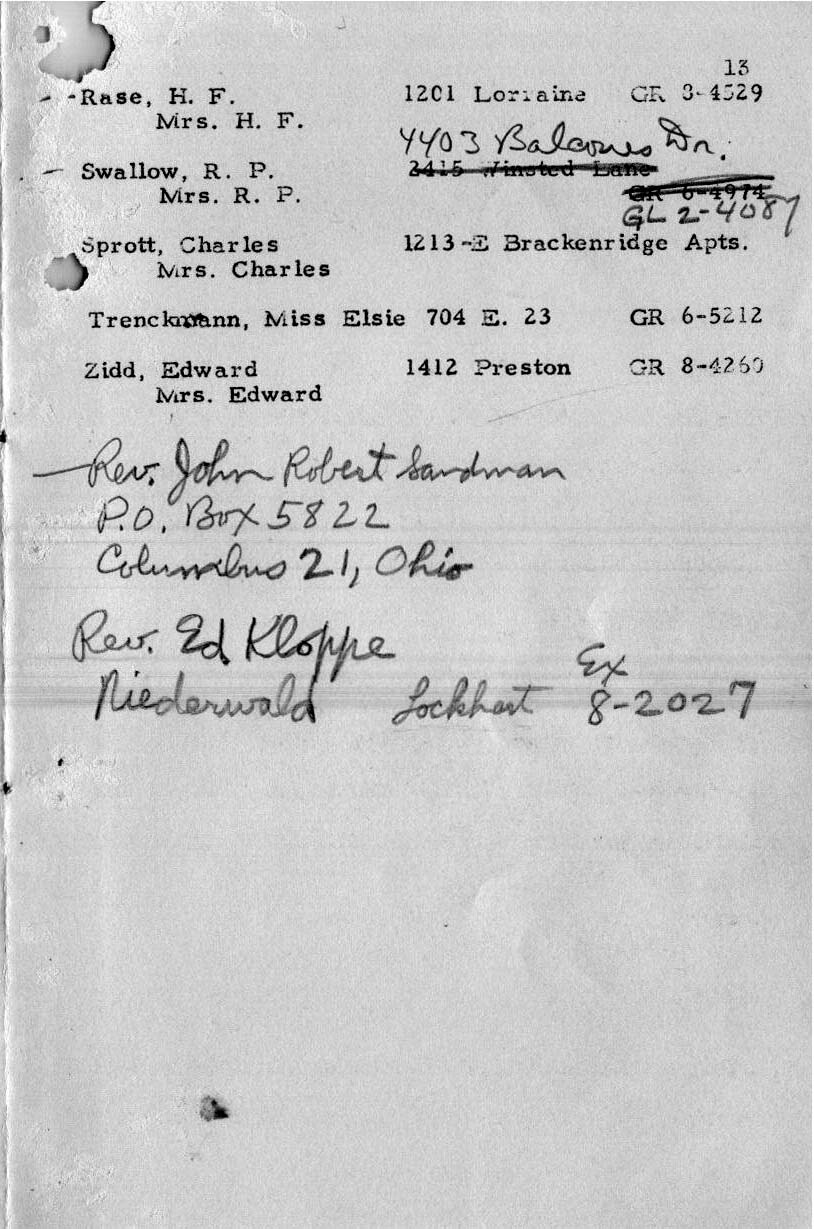 13
- -Rase, H. F. 1201 Lorraine GR 8-4529
Mrs. H. F.
4403 Balcones Dr.
- Swallow, R. P. 2415 Winsted Lane
Mrs. R. P. GR 6-4974
GL 2-4087
Sprott, Charles 1213-E Brackenridge Apts.
Mrs. Charles
Trenckmann, Miss Elsie 704 E. 23 GR 6-5212
Zidd, Edward 1412 Preston GR 8-4260
Mrs. Edward
—Rev. John Robert Sandman
P.O. Box 5822
Columbus 21, Ohio
Rev. Ed Kloppe
Ex
Niederwald Lockhart 8-2027